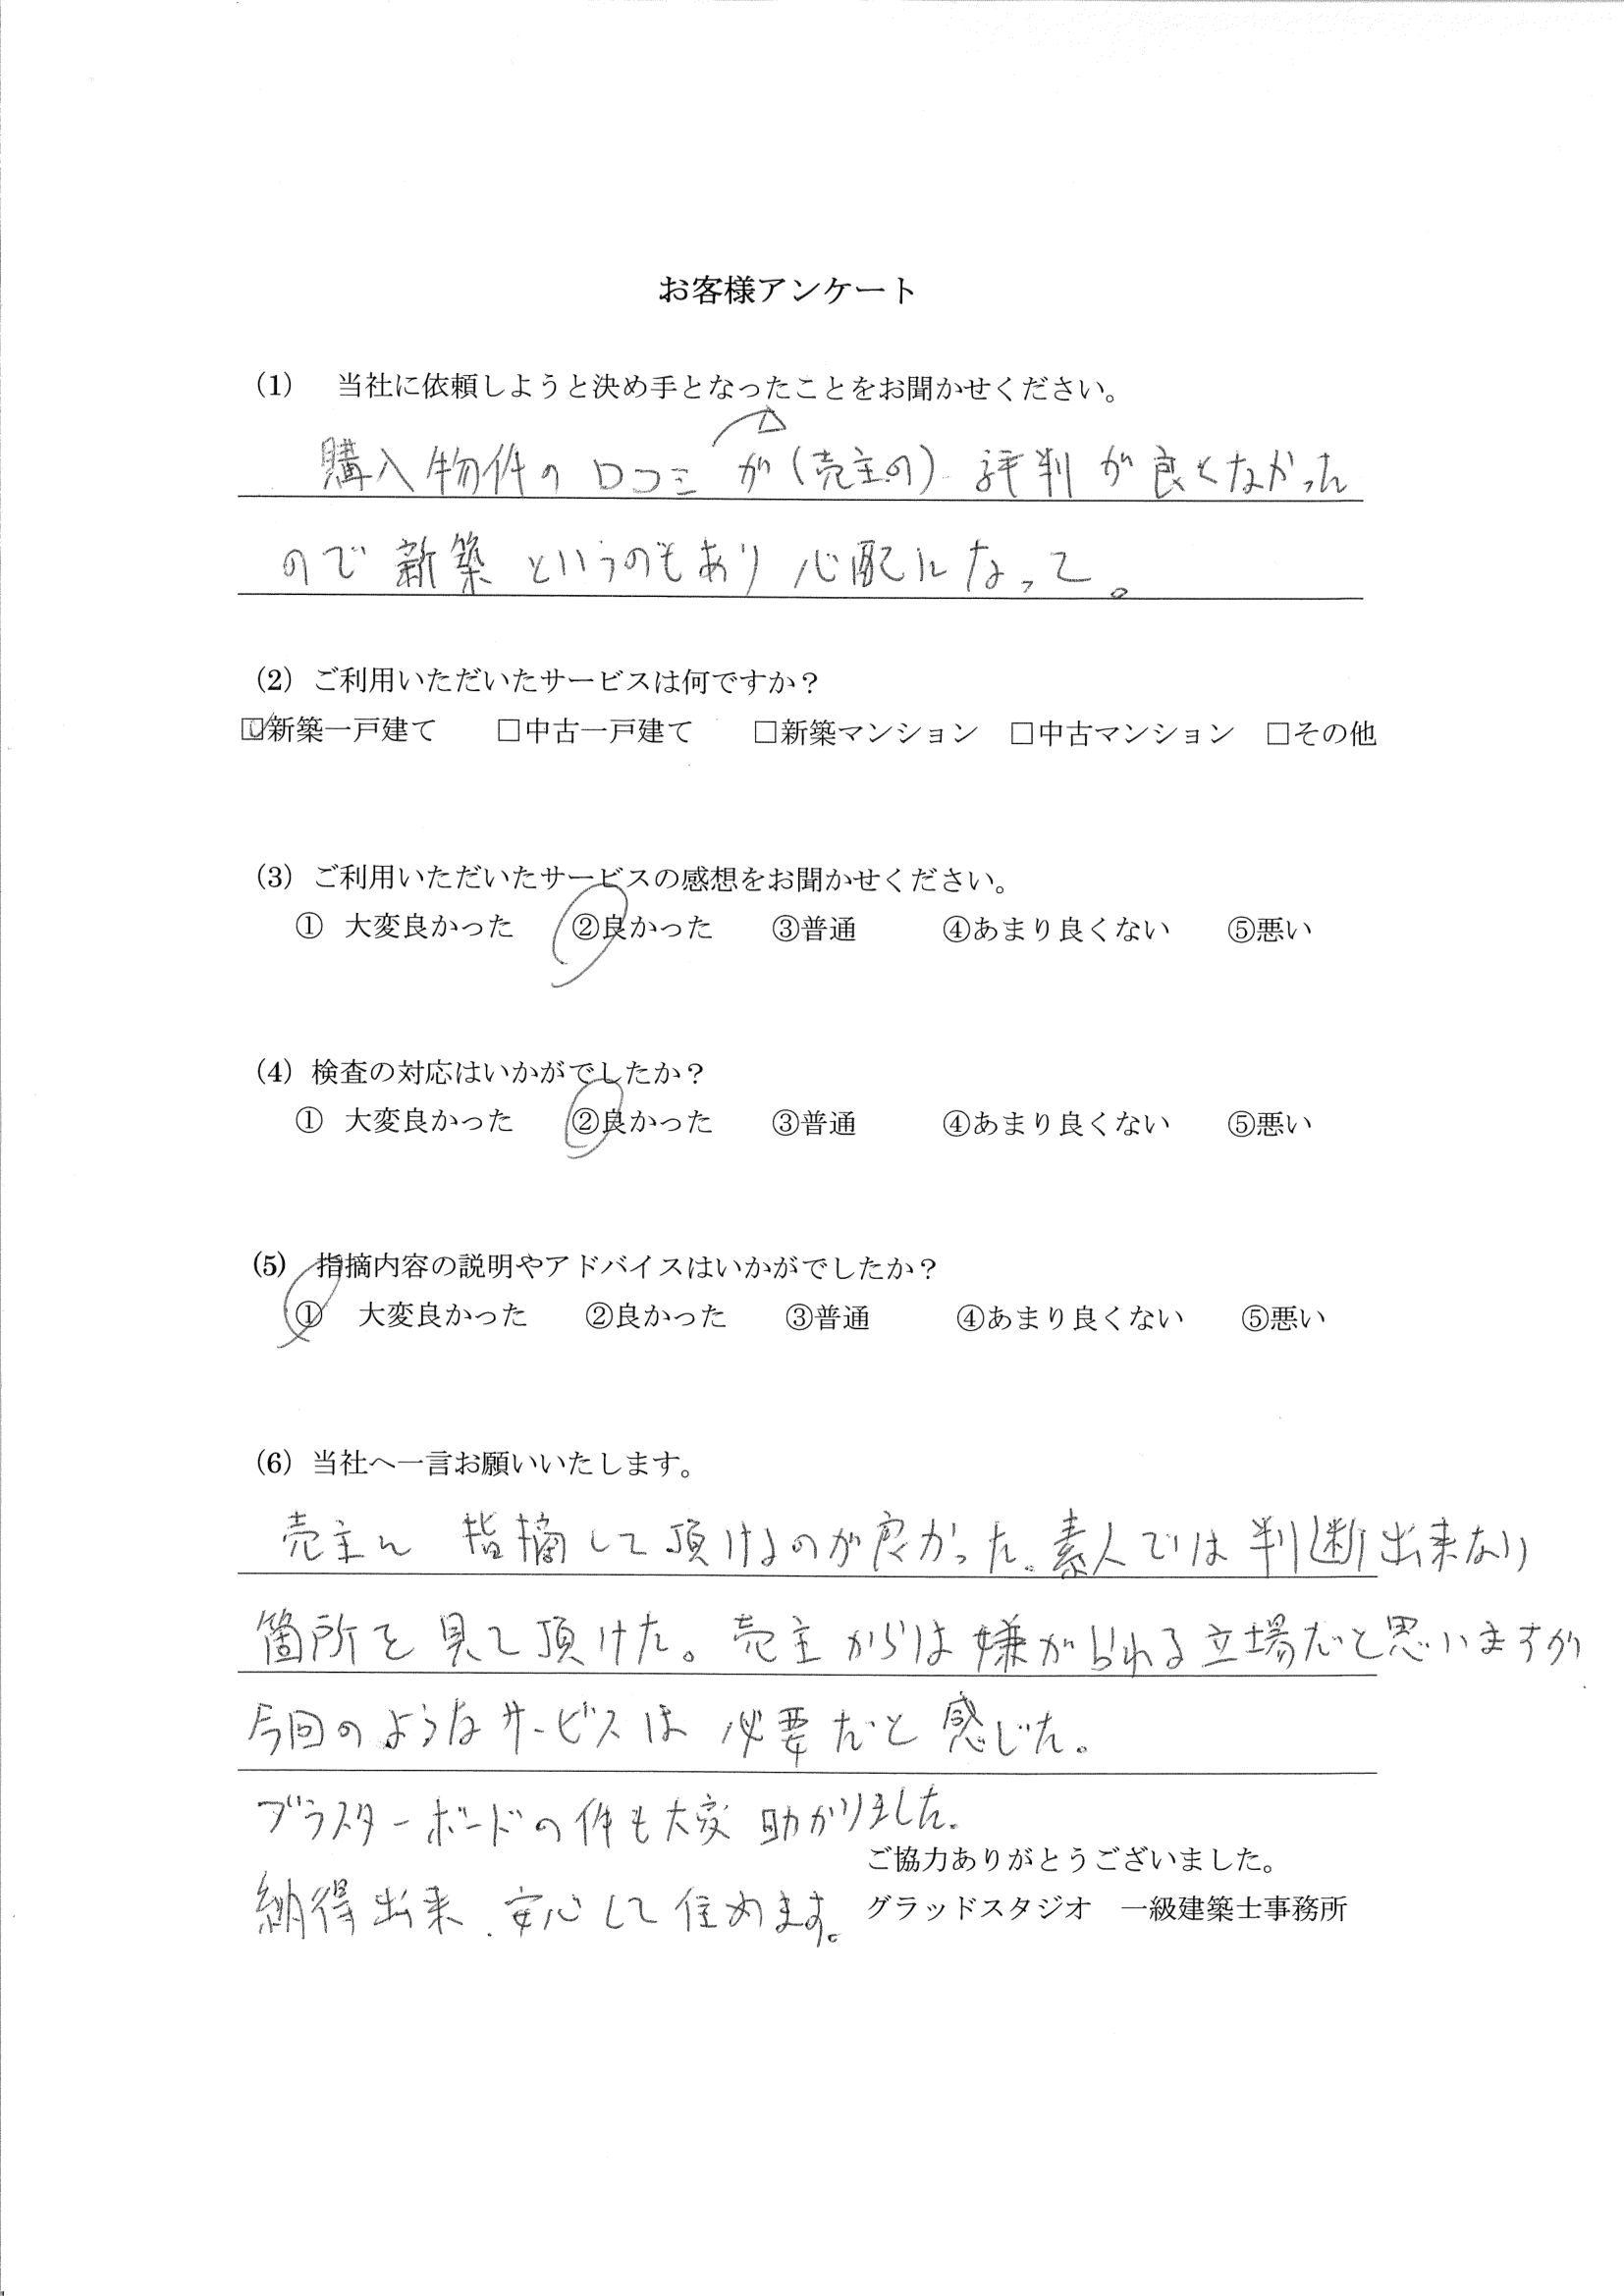 お客様アンケート
(1) 当社に依頼しようと決め手となったことをお聞かせください。
購入物件の口コミが(売主の)評判が良くなかった
ので新築というのもあり心配になって。
(2) ご利用いただいたサービスは何ですか？
☑新築一戸建て □中古一戸建て □新築マンション □中古マンション □その他
(3) ご利用いただいたサービスの感想をお聞かせください。
① 大変良かった ②良かった ③普通 ④あまり良くない ⑤悪い
(4) 検査の対応はいかがでしたか？
① 大変良かった ②良かった ③普通 ④あまり良くない ⑤悪い
(5) 指摘内容の説明やアドバイスはいかがでしたか？
① 大変良かった ②良かった ③普通 ④あまり良くない ⑤悪い
(6) 当社へ一言お願いいたします。
売主に指摘して頂けるのが良かった。素人では判断出来ない
箇所を見て頂けた。売主からは嫌がられる立場だと思いますが
今回のようなサービスは必要だと感じた。
プラスターボードの件も大変助かりました。
ご協力ありがとうございました。
納得出来、安心して住めます。
グラッドスタジオ 一級建築士事務所